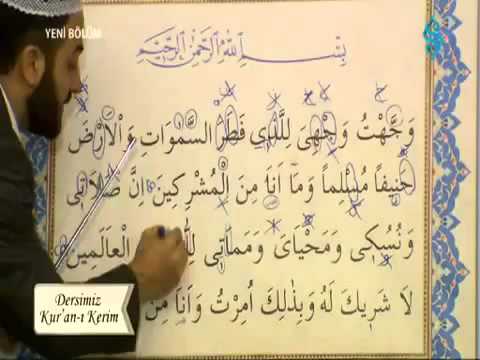 YENİ BÖLÜM
بِسْمِ اللّٰهِ الرَّحْمٰنِ الرَّحٖيمِ
وَجَّهْتُ وَجْهِىَ لِلَّذٖى فَطَرَ السَّمٰوَاتِ وَالْاَرْضَ
حَنٖيفاً مُسْلِماً وَمَا اَنَا مِنَ الْمُشْرِكٖينَ اِنَّ صَلَاتٖى
وَنُسُكٖى وَمَحْيَاىَ وَمَمَاتٖى لِلّٰهِ الْعَالَمٖينَ
لَا شَرٖيكَ لَهُ وَبِذٰلِكَ اُمِرْتُ وَاَنَا مِنَ
Dersimiz
Kur'an-ı Kerim